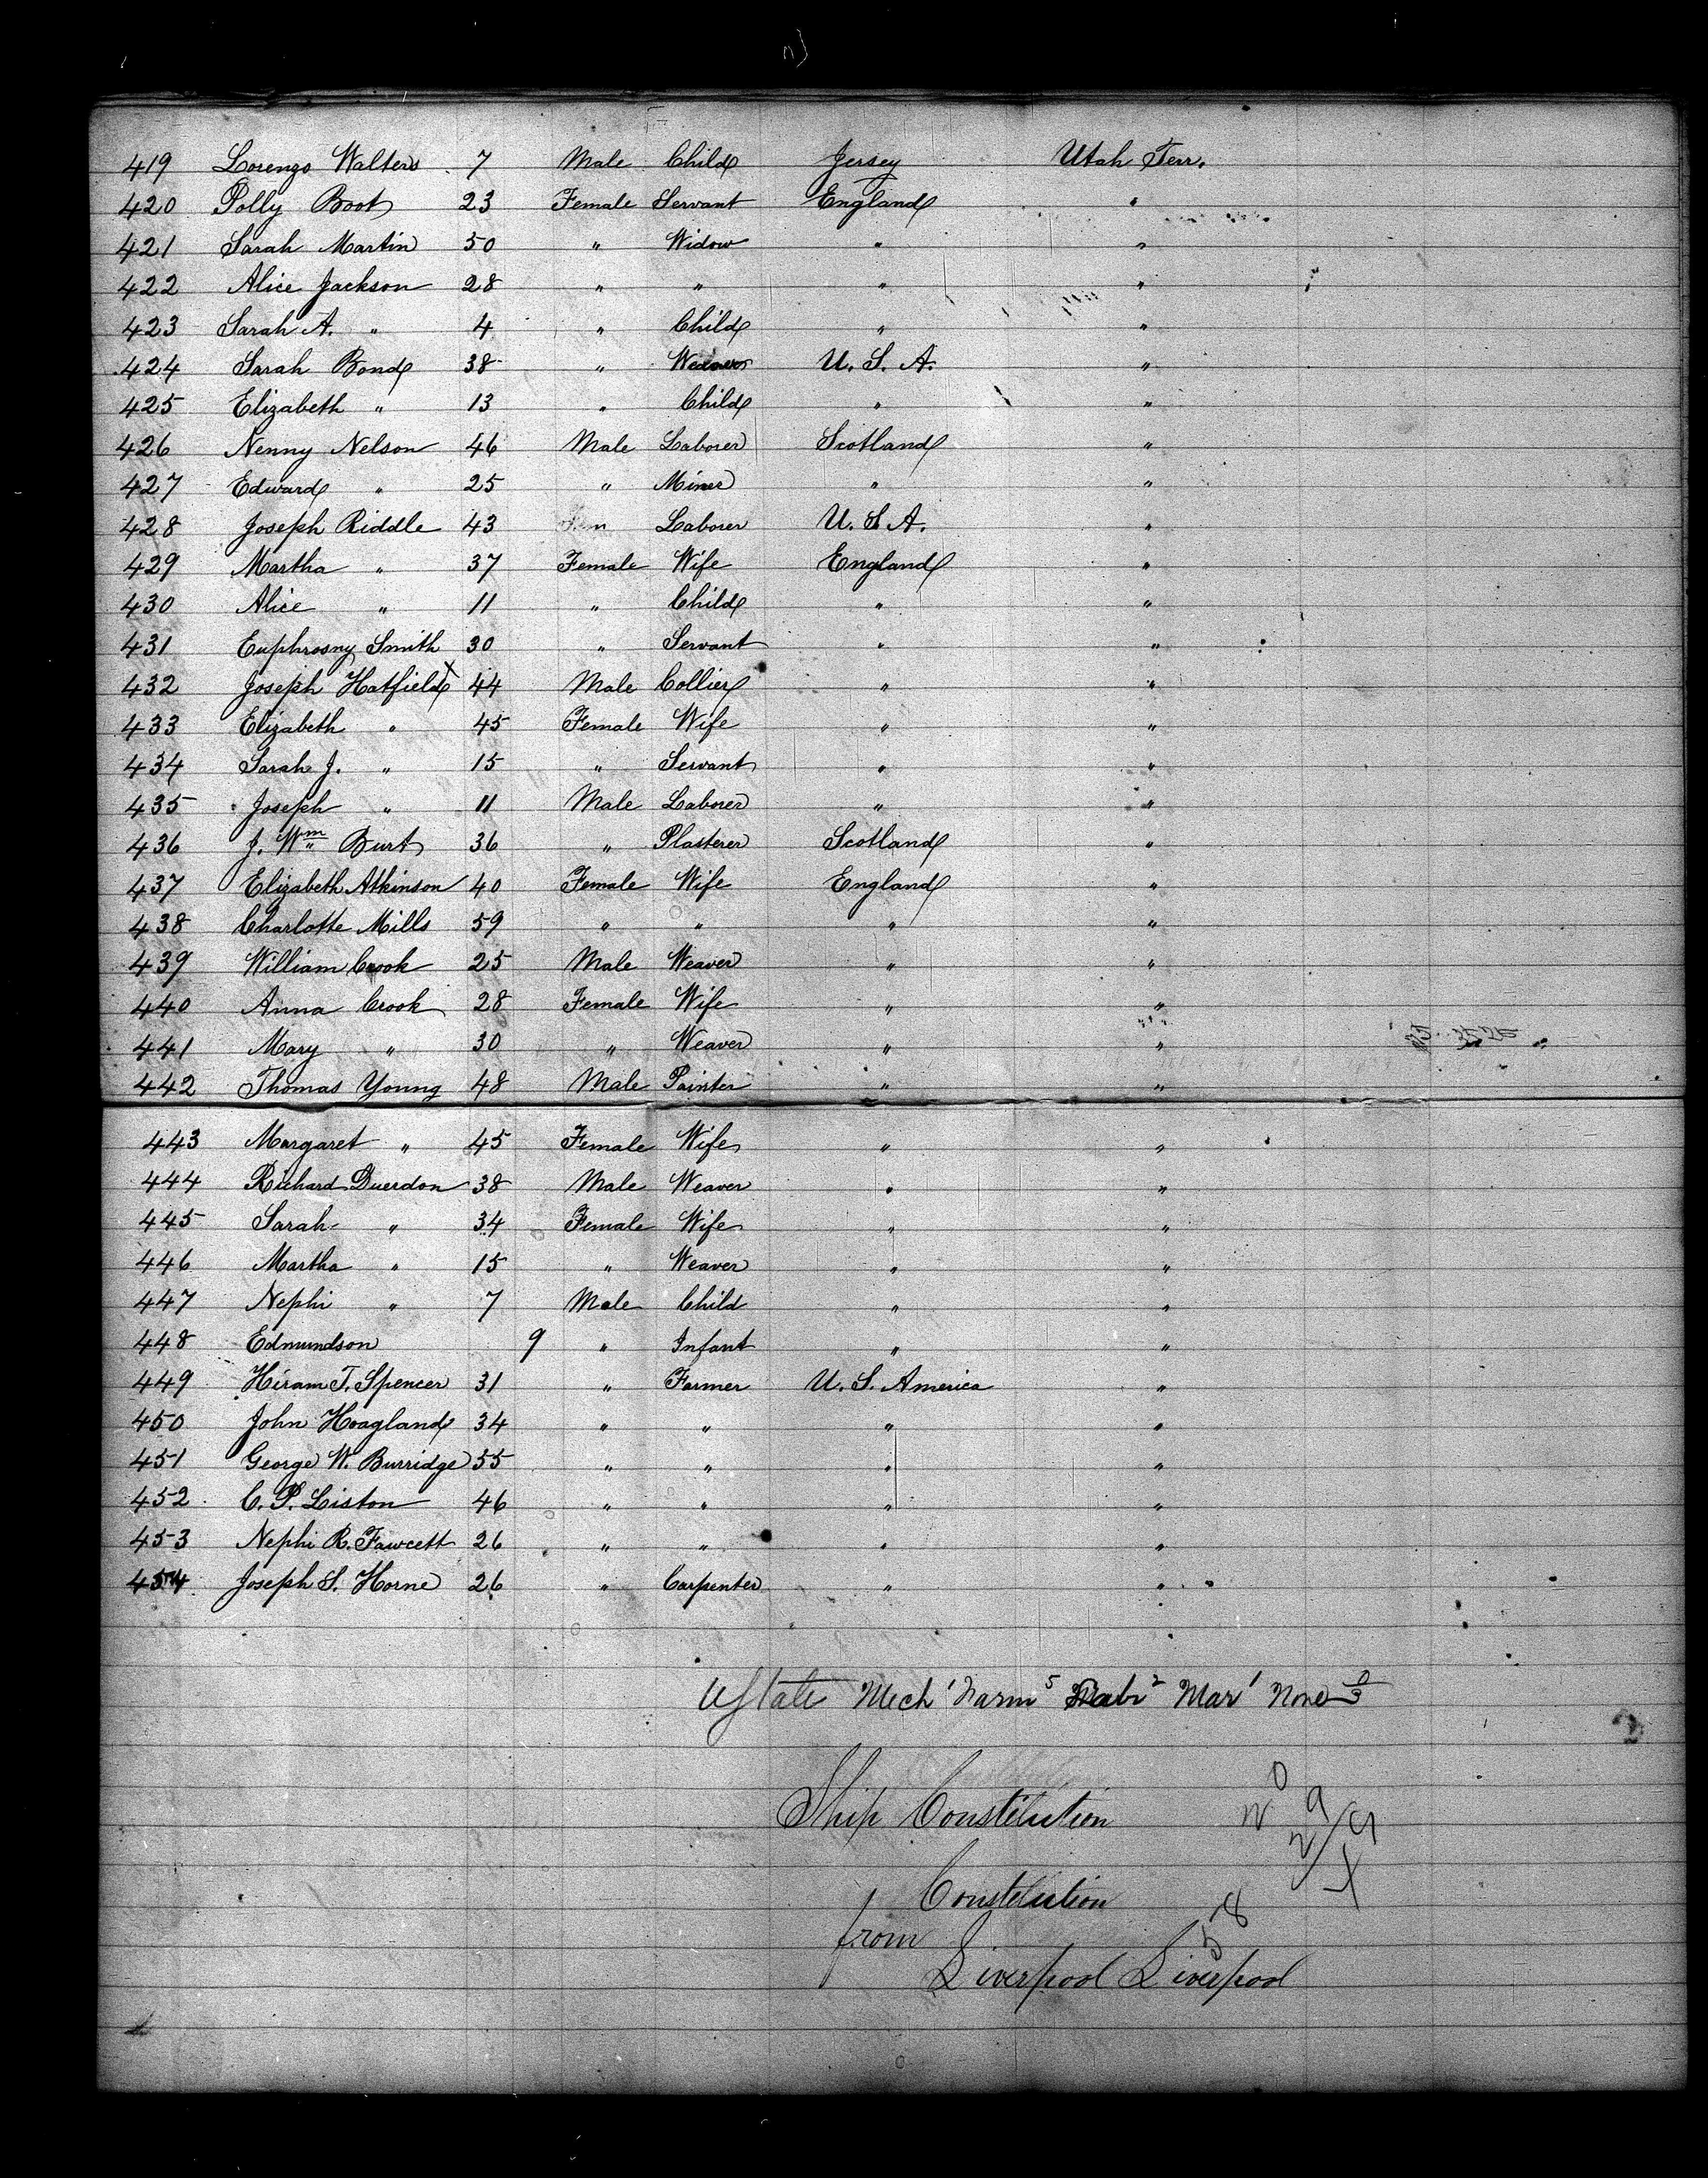 419 Lorenzo Walters 7 Male Child Jersey Utah Terr.
420 Polly Boot 23 Female Servant England "
421 Sarah Martin 50 " Widow " "
422 Alice Jackson 28 " " " "
423 Sarah A. " 4 " Child " "
424 Sarah Bond 38 " U. S. A. "
425 Elizabeth " 13 " Child " "
426 Nenny Nelson 46 Male Laborer Scotland "
427 Edward " 25 " Miner " "
428 Joseph Riddle 43 Laborer U. S. A. "
429 Martha " 37 Female Wife England "
430 Alice " 11 " Child " "
431 Euphrosny Smith 30 " Servant " "
432 Joseph Hatfield x 44 Male Collier " "
433 Elizabeth " 45 Female Wife " "
434 Sarah J. " 15 " Servant " "
435 Joseph " 11 Male Laborer " "
436 J. Wm Burt 36 " Plasterer Scotland "
437 Elizabeth Atkinson 40 Female Wife England "
438 Charlotte Mills 59 " " " "
439 William Crook 25 Male Weaver " "
440 Anna Crook 28 Female Wife " "
441 Mary " 30 " Weaver " "
442 Thomas Young 48 Male Painter " "
443 Margaret " 45 Female Wife " "
444 Richard Duerdon 38 Male Weaver " "
445 Sarah " 34 Female Wife " "
446 Martha " 15 " Weaver " "
447 Nephi " 7 Male Child " "
448 Edmundson 9 " Infant " "
449 Hiram T. Spencer 31 " Farmer U. S. America "
450 John Hoagland 34 " " " "
451 George W. Burridge 55 " " " "
452 C. P. Liston 46 " " " "
453 Nephi R. Fawcett 26 " " " "
454 Joseph S. Horne 26 " Carpenter " "
Mech 1 Farm 5 2 Mar 1 None
Ship Constitution
Constitution
from
58
Liverpool Liverpool